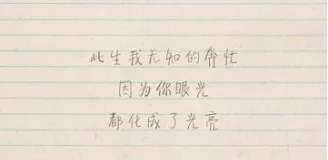 此生我无知的奔忙
因为你眼光
都化成了光亮